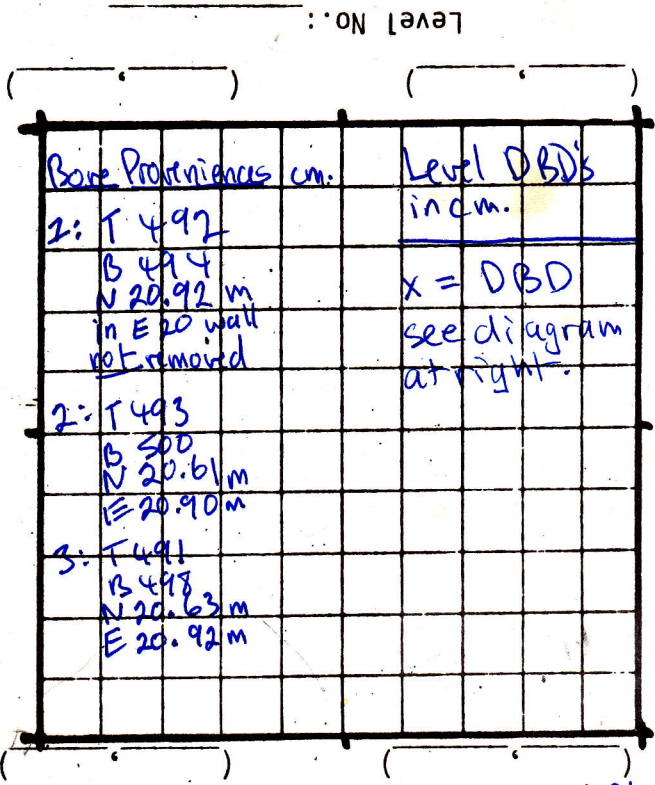 Level No.:
Bone Proveniences cm.
1: T 492
B 494
N 20.92 m
in E 20 wall
not removed
2: T 493
B 500
N 20.61 m
E 20.90 m
3: T 491
B 498
N 20.63 m
E 20.92 m
Level DBD's
in cm.
x = DBD
see diagram
at right.